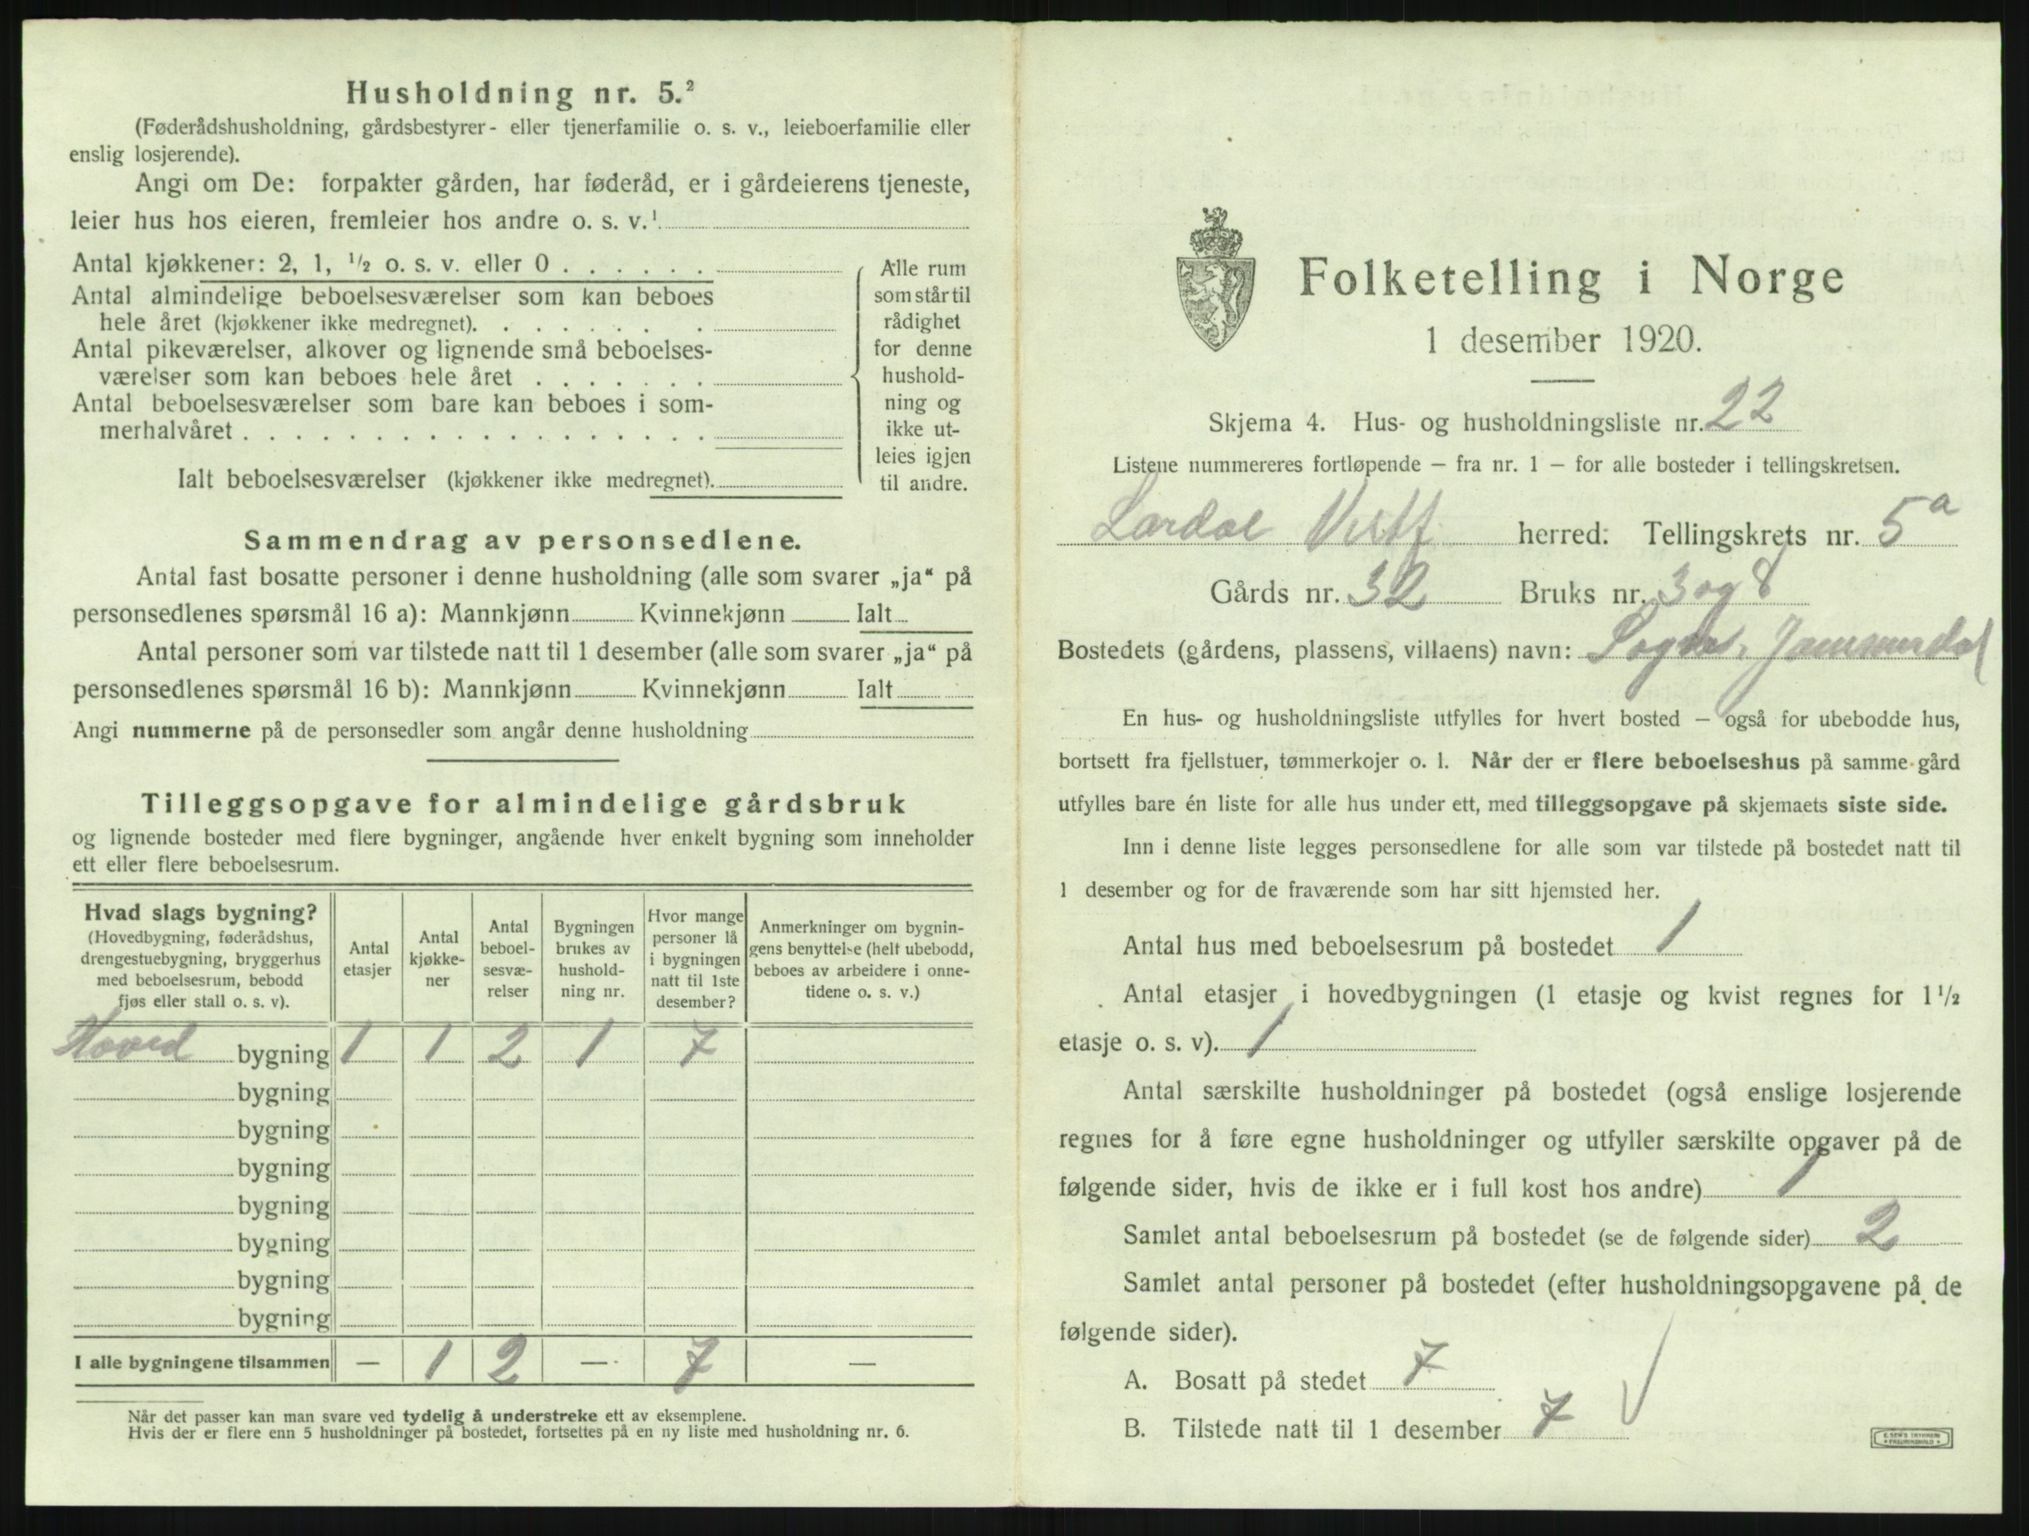 Husholdning nr. 5.²
(Føderådshusholdning, gårdsbestyrer- eller tjenerfamilie o. s. v., leieboerfamilie eller
enslig losjerende).
Angi om De: forpakter gården, har føderåd, er i gårdeierens tjeneste,
leier hus hos eieren, fremleier hos andre o. s. v.¹
Antal kjøkkener: 2, 1, ½ o. s. v. eller 0 . . . . . .
Antal almindelige beboelsesværelser som kan beboes
hele året (kjøkkener ikke medregnet). . . . . . . .
Antal pikeværelser, alkover og lignende små beboelses-
værelser som kan beboes hele året . . . . . . .
Antal beboelsesværelser som bare kan beboes i som-
merhalvåret . . . . . . . . . . . . . . . . . .
Ialt beboelsesværelser (kjøkkener ikke medregnet).
Alle rum
som står til
rådighet
for denne
hushold-
ning og
ikke ut-
leies igjen
til andre.
Sammendrag av personsedlene.
Antal fast bosatte personer i denne husholdning (alle som svarer „ja“ på
personsedlenes spørsmål 16 a): Mannkjønn Kvinnekjønn Ialt
Antal personer som var tilstede natt til 1 desember (alle som svarer „ja“ på
personsedlenes spørsmål 16 b): Mannkjønn Kvinnekjønn Ialt
Angi nummerne på de personsedler som angår denne husholdning
Tilleggsopgave for almindelige gårdsbruk
og lignende bosteder med flere bygninger, angående hver enkelt bygning som inneholder
ett eller flere beboelsesrum.
Hvad slags bygning?
(Hovedbygning, føderådshus,
drengestuebygning, bryggerhus
med beboelsesrum, bebodd
fjøs eller stall o. s. v).
Antal
etasjer
Antal
kjøkke-
ner
Antal
beboel-
sesvæ-
relser
Bygningen
brukes av
hushold-
ning nr.
Hvor mange
personer lå
i bygningen
natt til 1ste
desember?
Anmerkninger om bygnin-
gens benyttelse (helt ubebodd,
beboes av arbeidere i onne-
tidene o. s. v.)
Hoved bygning 1 1 2 1 7
bygning
bygning
bygning
bygning
bygning
bygning
bygning
I alle bygningene tilsammen — 1 2 — 7 —
Når det passer kan man svare ved tydelig å understreke ett av eksemplene.
Hvis der er flere enn 5 husholdninger på bostedet, fortsettes på en ny liste med husholdning nr. 6.
Folketelling i Norge
1 desember 1920.
Skjema 4. Hus- og husholdningsliste nr. 22
Listene nummereres fortløpende – fra nr. 1 – for alle bosteder i tellingskretsen.
Lardal herred. Tellingskrets nr. 5 a
Gårds nr. 32 Bruks nr. 3 og 8
Bostedets (gårdens, plassens, villaens) navn:
En hus- og husholdningsliste utfylles for hvert bosted – også for ubebodde hus,
bortsett fra fjellstuer, tømmerkojer o. l. Når der er flere beboelseshus på samme gård
utfylles bare én liste for alle hus under ett, med tilleggsopgave på skjemaets siste side.
Inn i denne liste legges personsedlene for alle som var tilstede på bostedet natt til
1 desember og for de fraværende som har sitt hjemsted her.
Antal hus med beboelsesrum på bostedet 1
Antal etasjer i hovedbygningen (1 etasje og kvist regnes for 1½
etasje o. s. v). 1
Antal særskilte husholdninger på bostedet (også enslige losjerende
regnes for å føre egne husholdninger og utfyller særskilte opgaver på de
følgende sider, hvis de ikke er i full kost hos andre) 1
Samlet antal beboelsesrum på bostedet (se de følgende sider) 2
Samlet antal personer på bostedet (efter husholdningsopgavene på de
følgende sider).
A. Bosatt på stedet 7
B. Tilstede natt til 1 desember 7